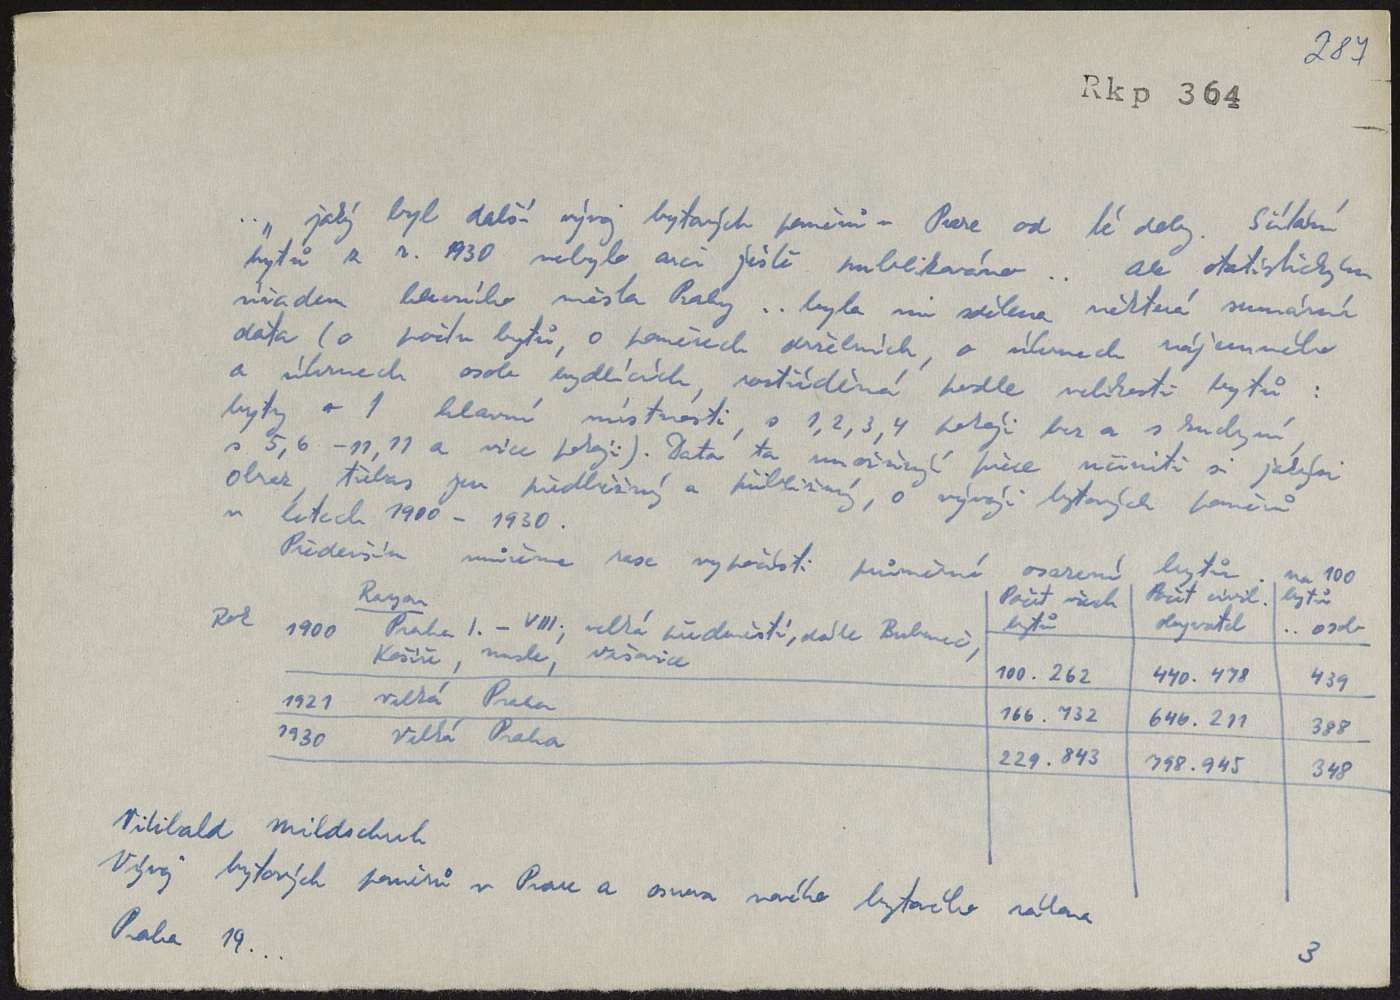 287
Rkp 364
..„ jaký byl další vývoj bytových poměrů v Praze od té doby. Sčítání
bytů z r. 1930 nebylo arci ještě publikováno .. ale statistickým
úřadem hlavního města Prahy .. byla mi sdělena některá sumární
data (o počtu bytů, o poměrech držebních, o úhrnech nájemného
a úhrnech osob bydlících, roztříděná podle velikosti bytů :
byty o 1 hlavní místnosti, s 1, 2, 3, 4 pokoji bez a s kuchyní,
s 5, 6 - 11, 11 a více pokoji). Data ta umožňují přece učiniti si jakýsi
obraz, třebas jen předběžný a přibližný, o vývoji bytových poměrů
v letech 1900 - 1930.
Především můžeme zase vypočísti průměrné osazení bytů .
Rok Rayon Počet všech bytů Počet civil. obyvatel na 100 bytů .. osob
1900 Praha I. - VIII; velká předměstí, dále Bubeneč,
Košíře, Nusle, Vršovice 100.262 440.478 439
1921 Velká Praha 166.732 646.211 388
1930 Velká Praha 229.843 798.945 348
Vilibald Mildschuh
Vývoj bytových poměrů v Praze a osnova nového bytového zákona
Praha 19...
3